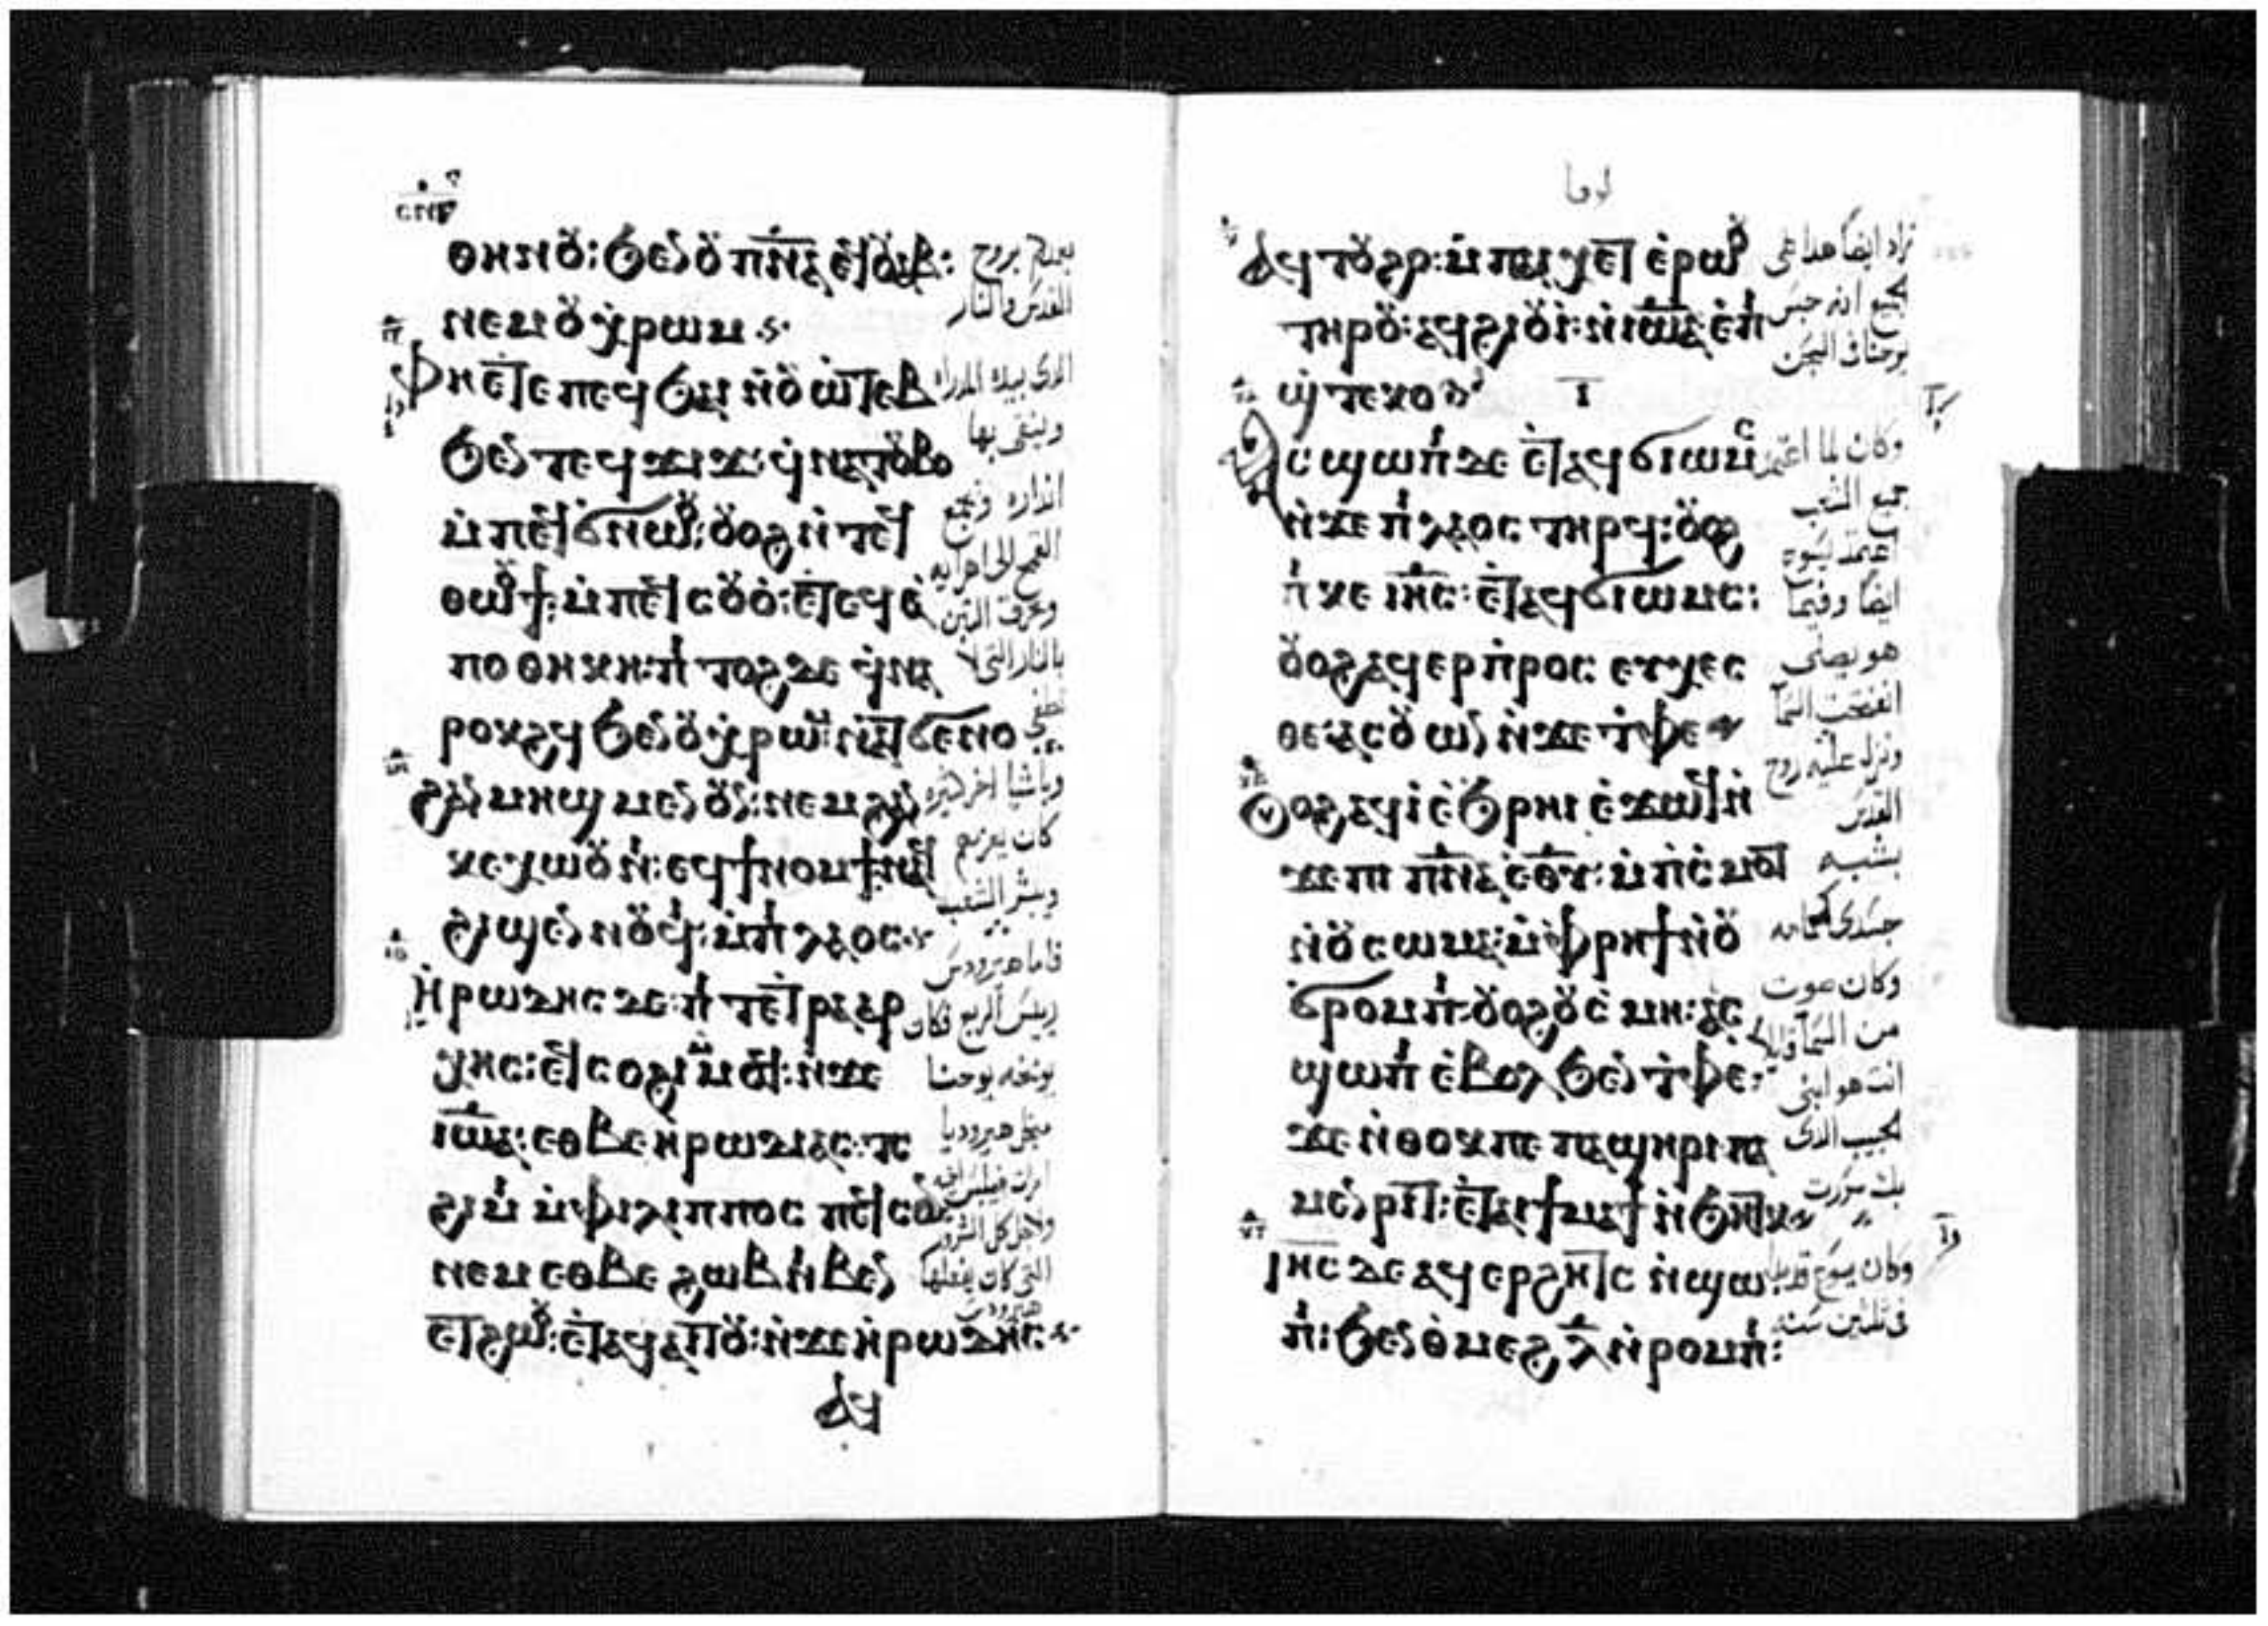 ⲑⲏⲛⲟⲩ: ϧⲉⲛ ⲟⲩⲡⲛⲁ ⲉϥⲟⲩⲁⲃ:
ⲛⲉⲙ ⲟⲩⲭⲣⲱⲙ
ⲫⲏⲉⲧⲉ ⲡⲉϥϧⲁⲓ ⲛⲟⲩⲱⲧⲉⲃ
ϧⲉⲛ ⲧⲉϥϫⲓϫ: ϥⲛⲁⲧⲟⲩⲃⲟ
ⲙⲡⲉϥϭⲛⲱⲟⲩ: ⲟⲩⲟϩ ⲛⲧⲉϥ
ⲑⲱⲟⲩϯ: ⲙⲡⲉϥⲥⲟⲩⲟ: ⲉⲧⲉϥⲁ
ⲡⲟⲑⲏⲕⲏ: ⲡⲓ ⲧⲟϩ ⲇⲉ ϥⲛⲁ
ⲣⲟⲕϩϥ ϧⲉⲛ ⲟⲩⲭⲣⲱⲙ: ⲛⲁⲧϭⲉⲛⲟ
ϩⲁⲛ ⲙⲏϣ ⲙⲉⲛ ⲟⲩⲛ: ⲛⲉⲙ ϩⲁⲛ
ⲕⲉⲭⲱⲟⲩⲛⲓ: ⲉϥϯⲛⲟⲙϯ: ⲛⲁϥ
ϩⲓϣⲉⲛⲛⲟⲩϥⲓ: ⲙⲡⲓ ⲗⲁⲟⲥ
ⲏⲣⲱⲇⲏⲥ ⲇⲉ: ⲡⲓ ⲧⲉⲧⲣⲁⲁⲣ
ⲭⲏⲥ: ⲉϥⲥⲟϩⲓ ⲙⲙⲟϥ: ⲛϫⲉ
ⲓⲱⲁ: ⲉⲑⲃⲉ ⲏⲣⲱⲇⲓⲁⲥ: ⲧⲥ
ϩⲓⲙⲓ ⲙⲫⲓⲗⲓⲡⲡⲟⲥ ⲡⲉϥⲥⲟⲛ
ⲛⲉⲙ ⲉⲑⲃⲉ ϩⲱⲃ ⲛⲓⲃⲉⲛ
ⲉⲧϩⲱⲟⲩ: ⲉⲧⲁϥⲁⲓⲧⲟⲩ: ⲛϫⲉ ⲏⲣⲱⲇⲏⲥ
ⲁϥ
بروح
القدس والنار
الدى بيده المدراه
وينقى بها
اندراه ويجمع
القمح الى اهرايه
ويحرق التبن
بالنار التى لا
تطفى
وباشيا اخر كثيره
كان يعزيهم
ويبشر الشعب
فاما هيرودس
رييس الربع فكان
يوبخه يوحنا
هيروديا
امراة فيلبس اخيه
ولاجل كل الشرور
التى كان يفعلها
هيرودس
ⲁϥⲧⲟⲩϩⲟ: ⲙⲡⲁⲓ ⲭⲉⲧ ⲉⲣⲱⲟⲩ
ⲧⲏⲣⲟⲩ: ⲁϥϩⲓⲟⲩⲓ: ⲛⲓⲱⲁ ⲉⲡⲓ
ϣⲧⲉⲕⲟ
ⲁⲥϣⲱⲡⲓ ⲇⲉ ⲉⲧⲁϥϭⲓⲱⲙⲥ
ⲛϫⲉ ⲡⲓ ⲗⲁⲟⲥ ⲧⲏⲣϥ: ⲟⲩⲟϩ
ⲡⲓⲕⲉ ⲓⲏⲥ: ⲉⲧⲁϥϭⲓⲱⲙⲥ:
ⲟⲩⲟϩ ⲁϥⲉⲣⲡⲣⲟⲥⲉⲩⲭⲉⲥ
ⲑⲉ ⲁⲥⲟⲩⲱⲛ ⲛϫⲉ ⲧⲫⲉ
ⲟⲩⲟϩ ⲁϥⲓ ⲉϧⲣⲏⲓ ⲉϫⲱϥ ⲛ
ϫⲉ ⲡⲓ ⲡⲛⲁ ⲉⲑⲩ: ⲙⲡⲓⲥⲙⲟⲧ
ⲛⲟⲩⲥⲱⲙⲁ: ⲙⲫⲣⲏϯ ⲛⲟⲩ
ϭⲣⲟⲙⲡⲓ: ⲟⲩⲟϩ ⲟⲩⲥⲙⲏ: ⲁⲥ
ϣⲱⲡⲓ ⲉⲃⲟⲗ ϧⲉⲛ ⲧⲫⲉ:
ϫⲉ ⲛⲑⲟⲕ ⲡⲉ ⲡⲁϣⲏⲣⲓ ⲡⲁ
ⲙⲉⲛⲣⲓⲧ: ⲉⲧⲁⲓϯⲙⲁϯ ⲛϧⲏⲧⲕ
ⲓⲏⲥ ⲇⲉ ⲁϥⲉⲣϩⲏⲧⲥ ⲛϣⲱ
ⲡⲓ: ϧⲉⲛ ⲑⲙⲉϩ ⲗ ⲛⲣⲟⲙⲡⲓ:
زاد ايضا هدا على
انه حبس
يوحنا فى السجن
وكان لما اعتمد
جميع الشعب
اعتمد يسوع
ايضا وفيما
هو يصلى
انفتحت السما
ونزل عليه روح
القدس
بشبه
جسدى كحمامه
وكان صوت
من السما قايلا
انت هو ابنى
الحبيب الدى
بك سررت
وكان يسوع قد بدا
فى ثلثين سنه